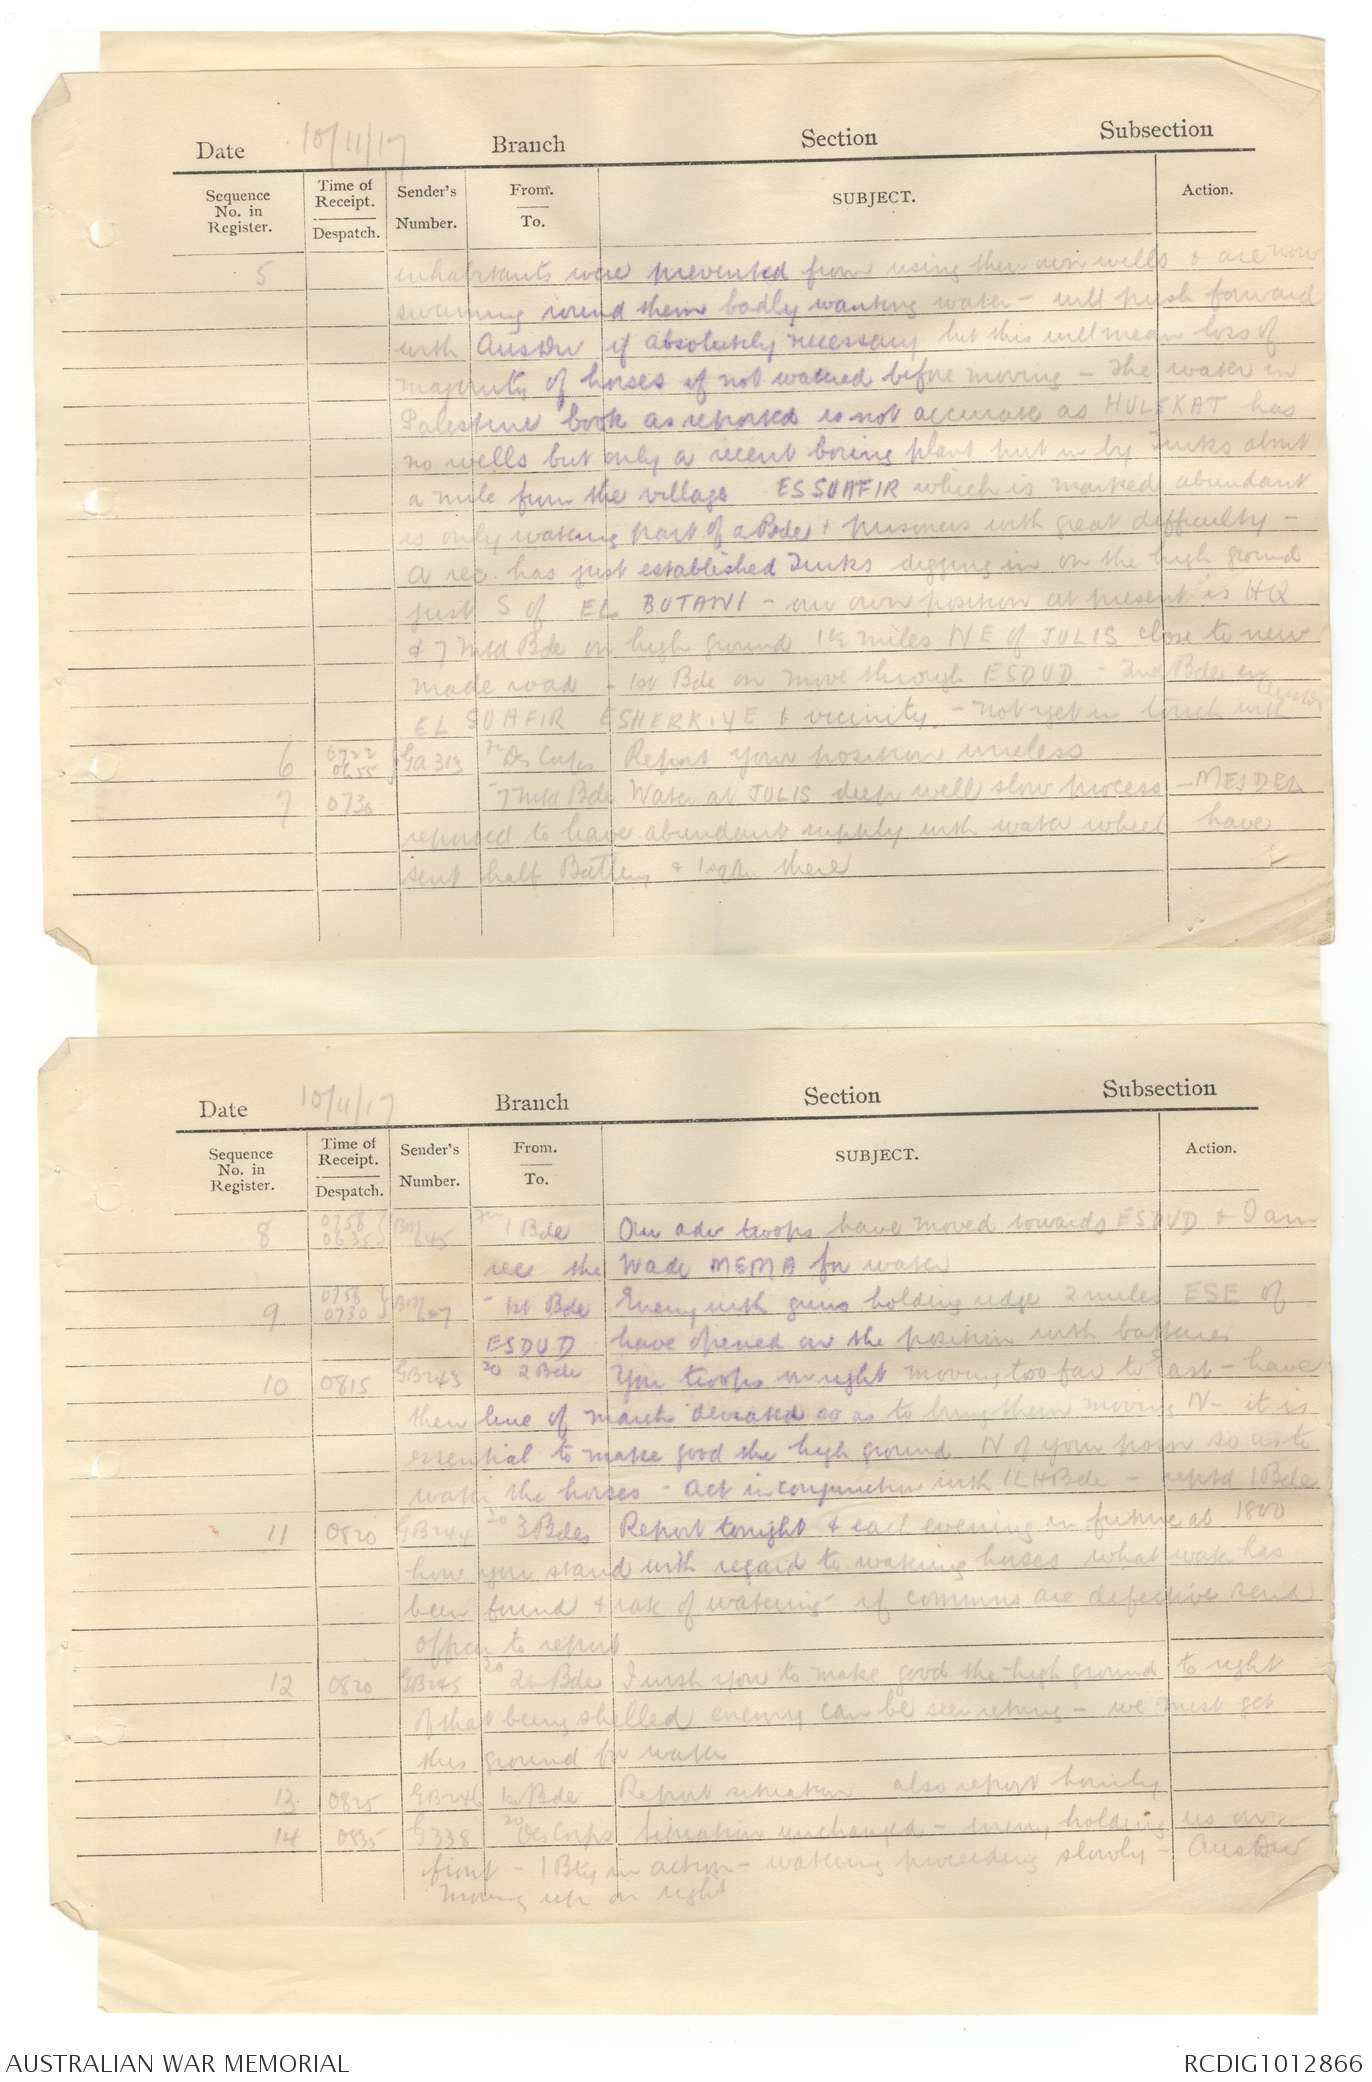 Date 10/11/17 Branch Section Subsection
Sequence No. in Register. Time of Receipt. Despatch. Sender's Number. From. To. SUBJECT. Action.
5 inhabitants were prevented from using their own wells & are now
swarming round them badly wanting water - will push forward
with AusDiv if absolutely necessary but this will mean loss of
majority of horses if not watered before moving - The water in
Palestine book as reported is not accurate as HULEKAT has
no wells but only a recent boring plant put in by Turks about
a mile from the village ESSUAFIR which is marked abundant
is only watering part of a Bde & prisoners with great difficulty -
A rec. has just established Turks digging in on the high ground
just S of EL BUTANI - our own position at present is HQ
& 7 Mtd Bde on high ground 1½ miles NE of JULIS close to new
made road - 1st Bde on move through ESDUD - 2nd Bde in
EL SUAFIR ESHERKIYE & vicinity - not yet in touch with AusDiv
6 0722 0655 GA 313 Des Corps Report your position wireless
7 0730 7 Mtd Bde Water at JULIS deep well slow process - MEJDEL
reported to have abundant supply with water wheel have
sent half Battery & 1 sqdn there
Date 10/11/17 Branch Section Subsection
Sequence No. in Register. Time of Receipt. Despatch. Sender's Number. From. To. SUBJECT. Action.
8 0758 0635 BM 645 1 Bde Our adv troops have moved towards ESDUD & I am
rec the Wade MEMA for water
9 0758 0730 BM 1st Bde Enemy with guns holding ridge 2 miles ESE of
ESDUD have opened on the position with batteries
10 0815 GB243 to 2 Bde Your troops on right moving too far to East - have
their line of march deviated so as to bring them moving N - it is
essential to make good the high ground N of your posn so as to
water the horses - act in conjunction with 1LHBde - reptd 1Bde
11 0820 GB244 to 3 Bdes Report tonight & each evening in future at 1800
how you stand with regard to watering horses what water has
been found & rate of watering - if communs are defective send
officer to report
12 0820 GB245 to 2 Bde I wish you to make good the high ground to right
of that being shelled enemy can be seen retiring - we must get
this ground for water
13 0825 GB246 1st Bde Report situation also report hourly
14 0835 G338 to Des Corps Situation unchanged - enemy holding us on
front - 1 Bty in action - watering proceeding slowly - AusDiv
moving up on right
AUSTRALIAN WAR MEMORIAL RCDIG1012866